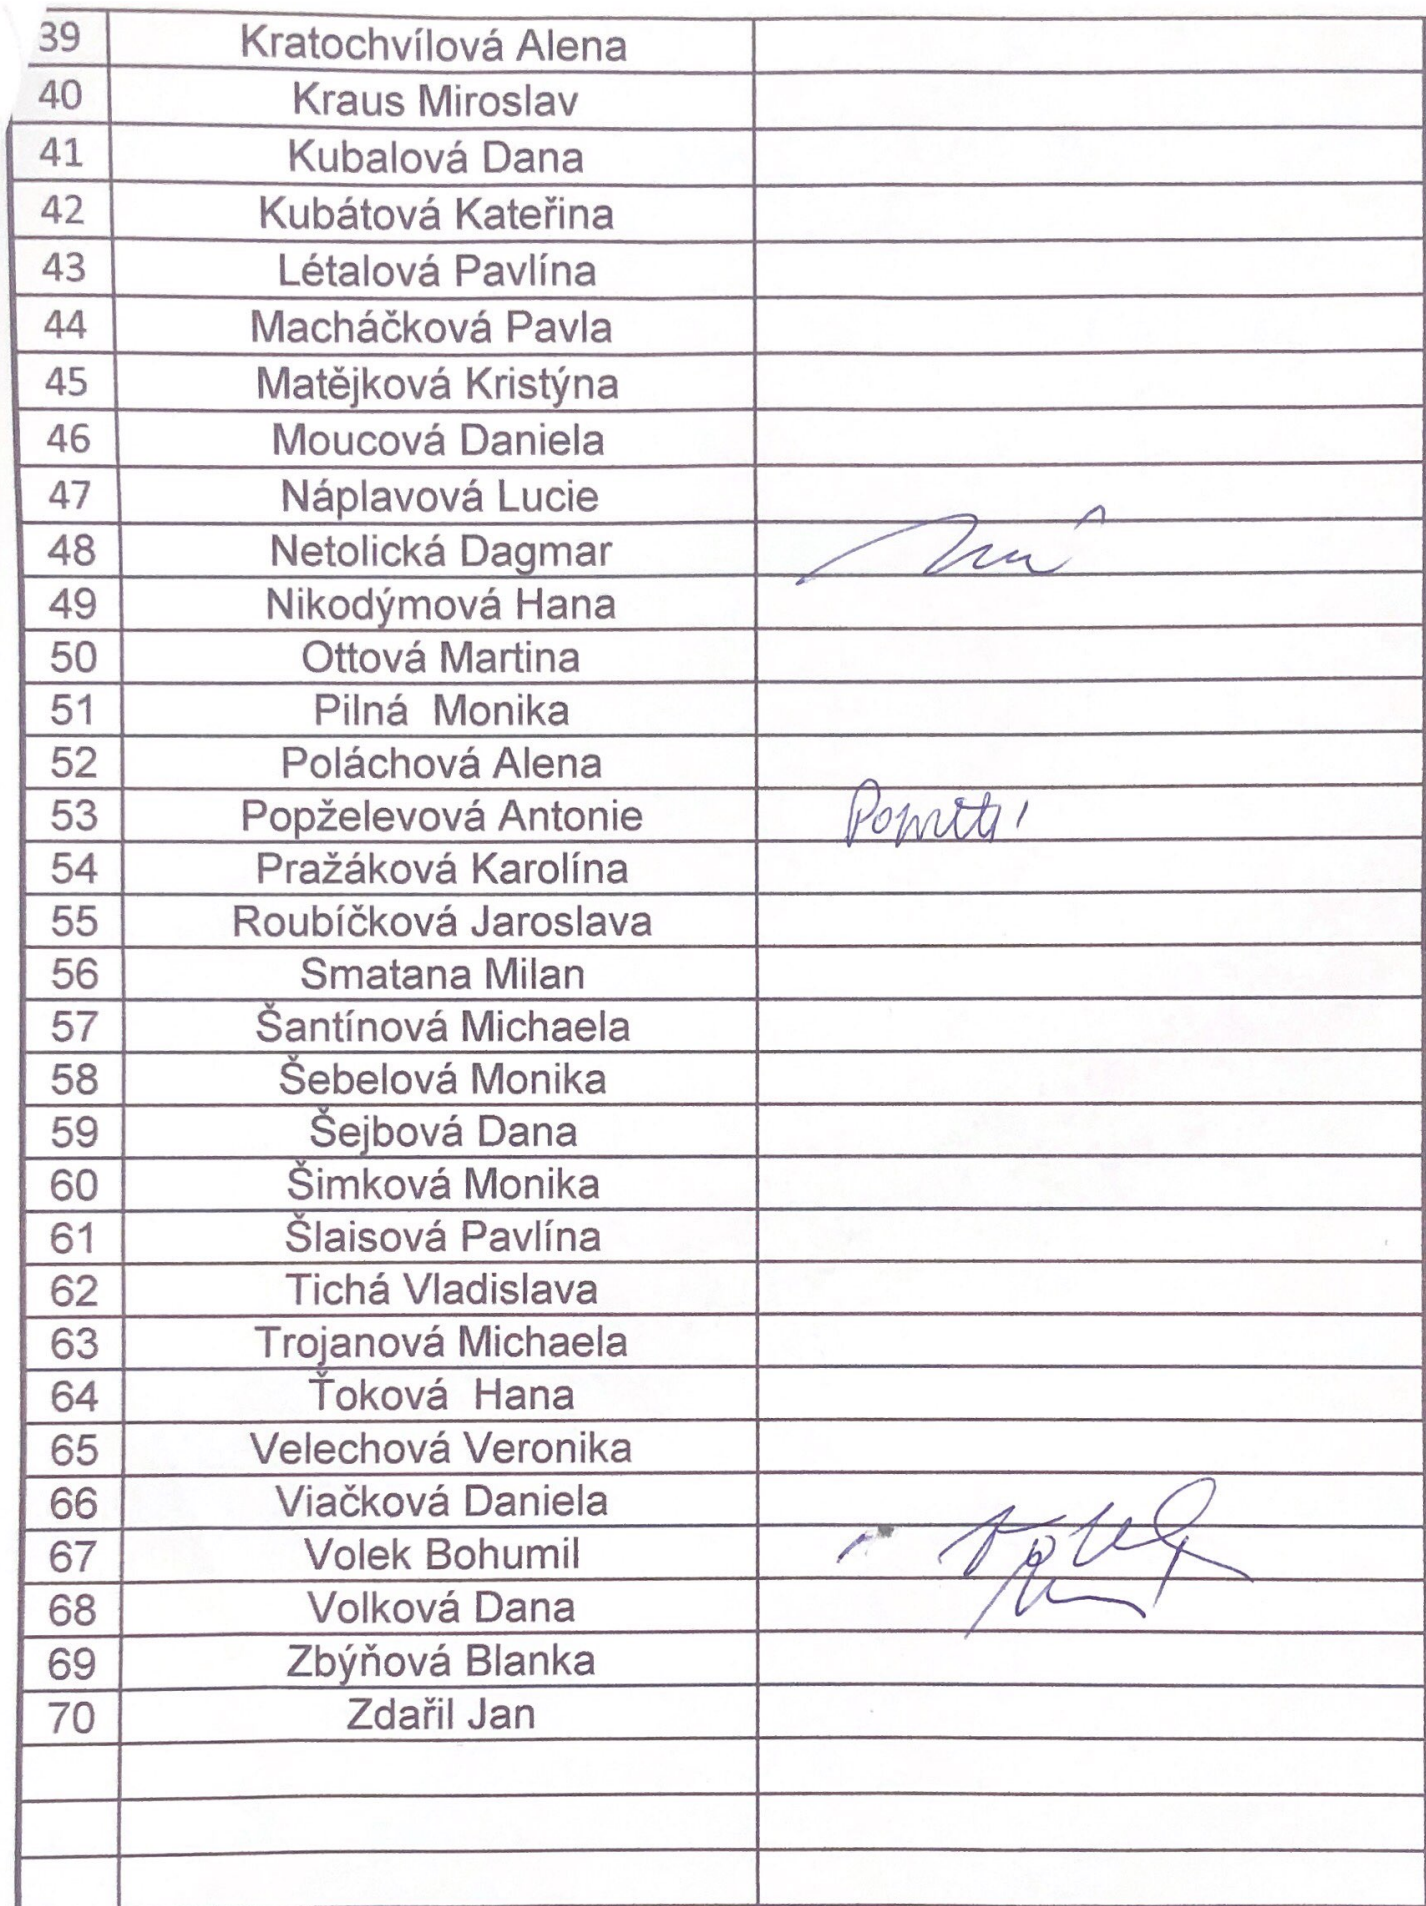 39 Kratochvílová Alena
40 Kraus Miroslav
41 Kubalová Dana
42 Kubátová Kateřina
43 Létalová Pavlína
44 Macháčková Pavla
45 Matějková Kristýna
46 Moucová Daniela
47 Náplavová Lucie
48 Netolická Dagmar
49 Nikodýmová Hana
50 Ottová Martina
51 Pilná Monika
52 Poláchová Alena
53 Popželevová Antonie
54 Pražáková Karolína
55 Roubíčková Jaroslava
56 Smatana Milan
57 Šantínová Michaela
58 Šebelová Monika
59 Šejbová Dana
60 Šimková Monika
61 Šlaisová Pavlína
62 Tichá Vladislava
63 Trojanová Michaela
64 Ťoková Hana
65 Velechová Veronika
66 Viačková Daniela
67 Volek Bohumil
68 Volková Dana
69 Zbýňová Blanka
70 Zdařil Jan